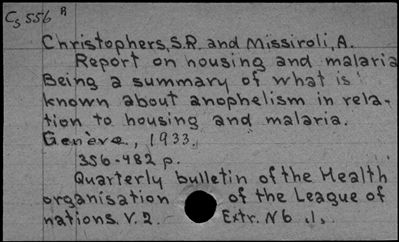 Cs 556 R
Christophers, S.R. and Missiroli, A.
Report on housing and malaria
Being a summary of what is
known about anophelism in rela-
tion to housing and malaria.
Genève, 1933.
356-482 p.
Quarterly bulletin of the Health
organisation of the League of
nations. V. 2. Extr. N 6